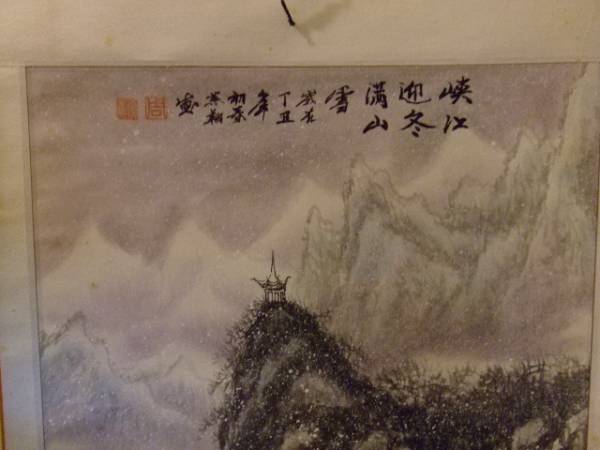 峡江
迎冬
满山
雪
岁在
丁丑
年
初冬
画
周